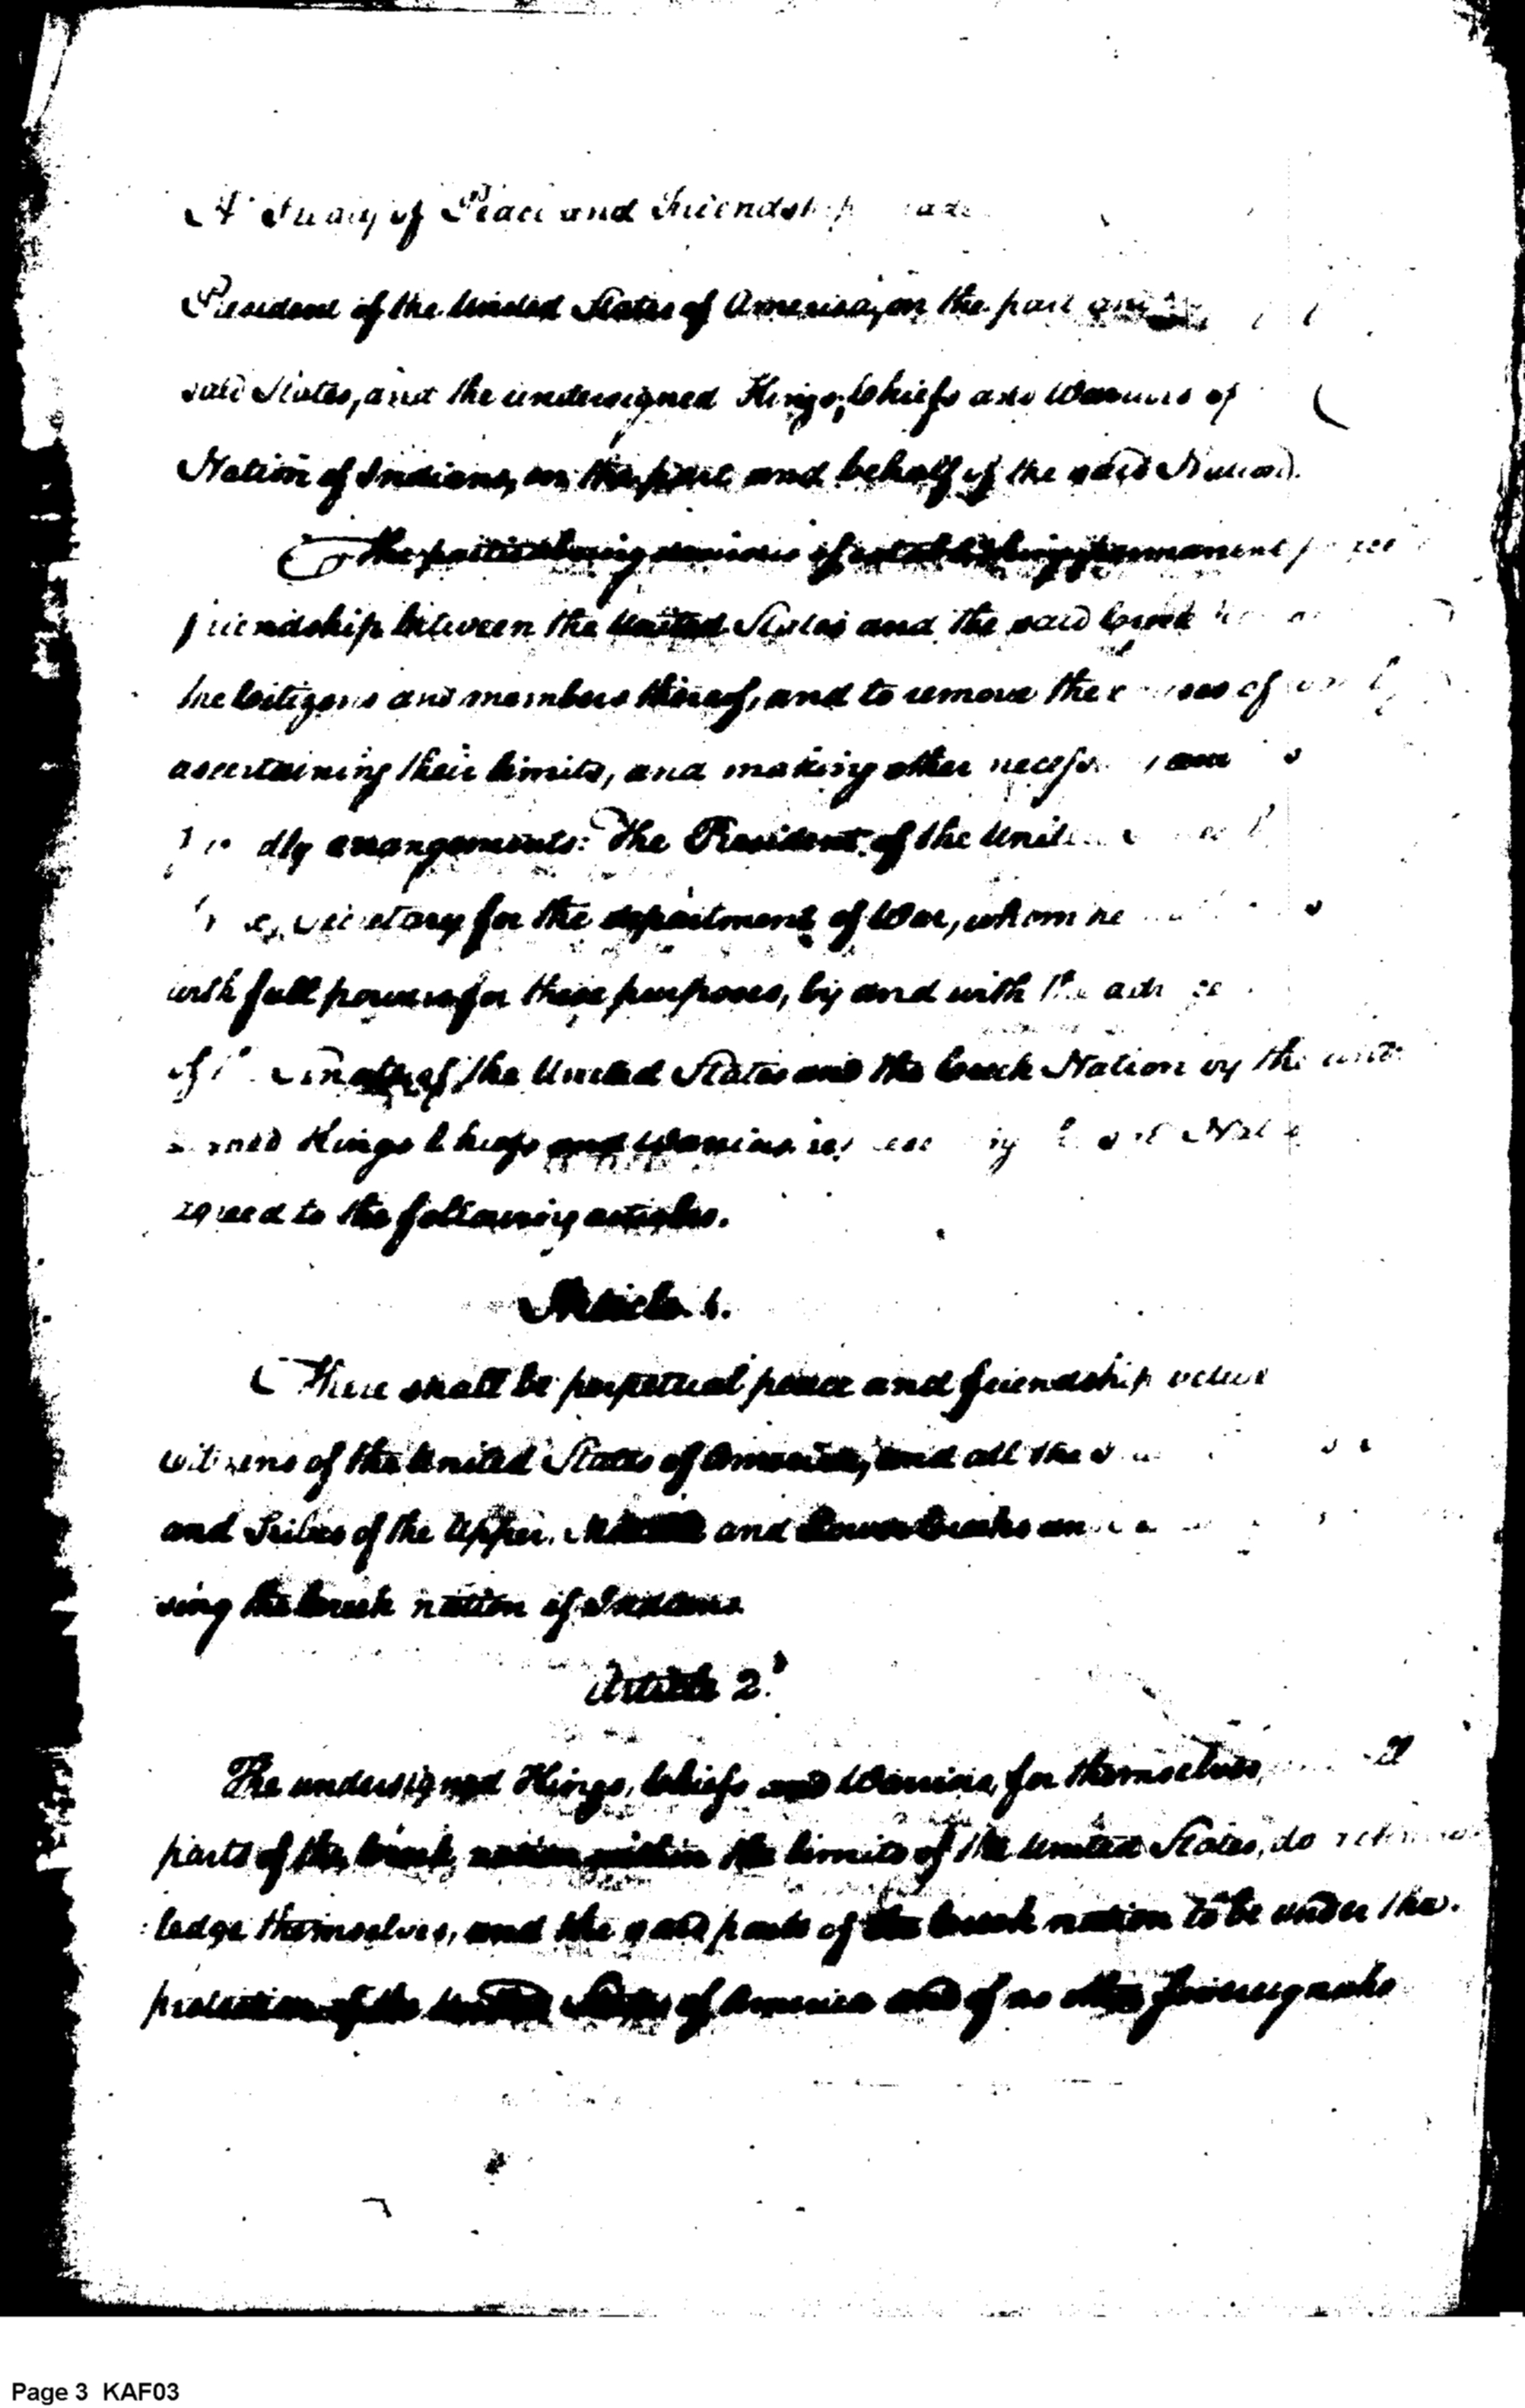 A Treaty of Peace and Friendship
President of the United States of America, on the part and
said States, and the undersigned Kings, Chiefs and Warriors of
Nation of Indians, on the part and behalf of the said Nation.
The parties being desirous of establishing permanent peace
friendship between the United States and the said Creek
the Citizens and members thereof, and to remove the causes of
ascertaining their limits, and making other
arrangements: The President of the United
Secretary for the department of War, whom he
with full powers for these purposes, by and with the advice
of the Senate of the United States and the Creek Nation by the
Kings Chiefs and Warriors
agreed to the following articles.
Article 1.
There shall be perpetual peace and friendship
citizens of the United States of America, and all the
and Tribes of the Upper, Middle and Lower Creeks
sing the Creek nation of Indians
Article 2.
The undersigned Kings, Chiefs and Warriors, for themselves,
parts of the Creek nation within the limits of the United States, do
ledge themselves, and the said parts of the Creek nation to be under the
protection of the United States of America and of no other
Page 3 KAF03